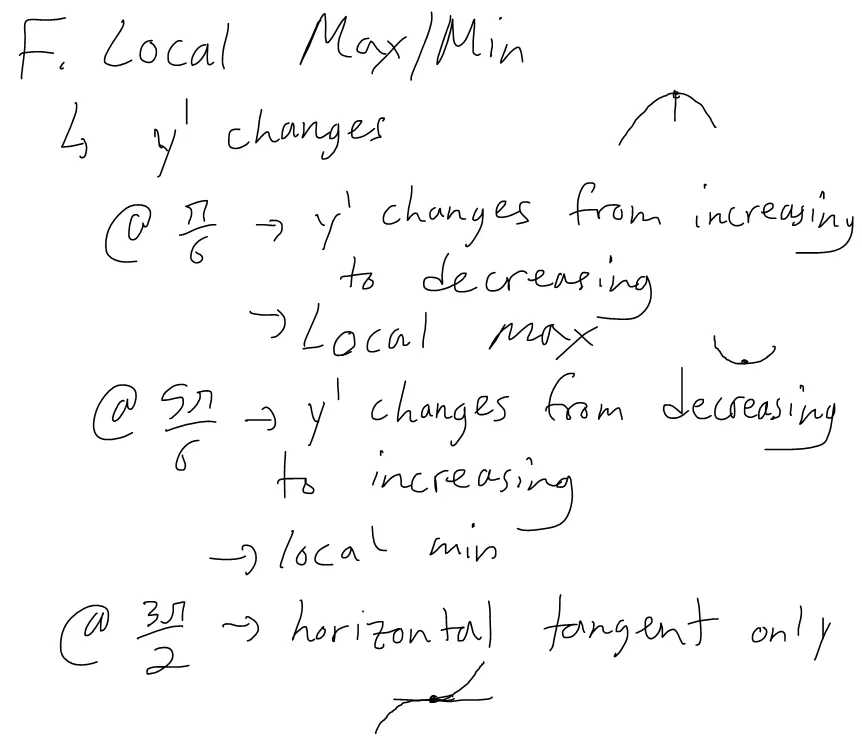 F. Local Max/Min
↳ y' changes
@ π/6 → y' changes from increasing
to decreasing
→ Local max
@ 5π/6 → y' changes from decreasing
to increasing
→ local min
@ 3π/2 → horizontal tangent only